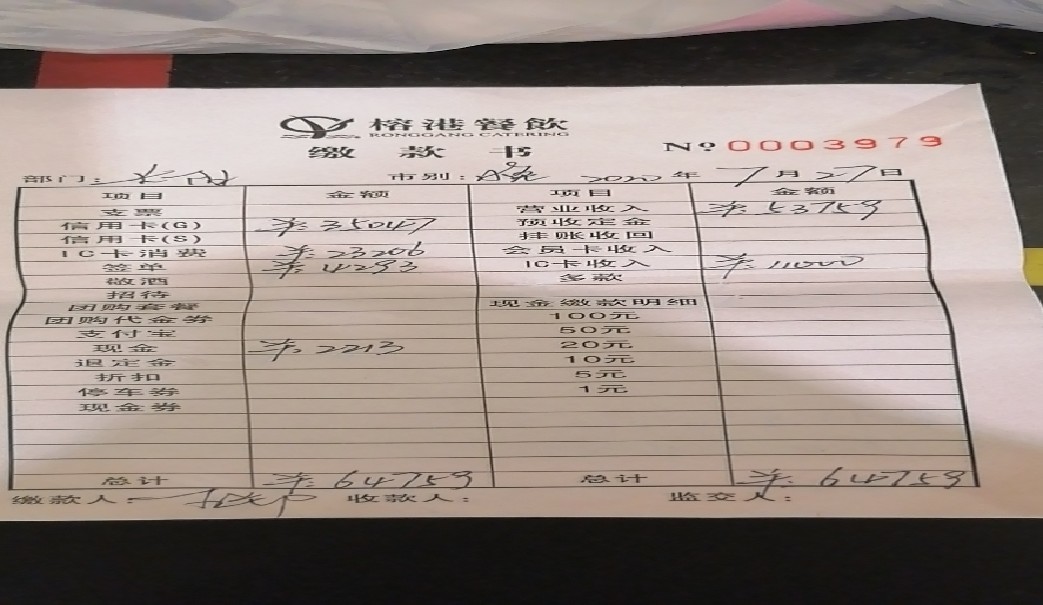 榕港餐飲
RONGGANG CATERING
缴款书
№ 0003979
部门: 市别: 2020年7月27日
项目 金额 项目 金额
支票 营业收入 ¥:53759
信用卡(G) ¥:35047 预收定金
信用卡(S) 挂账收回
IC卡消费 ¥:23206 会员卡收入
签单 ¥:4293 IC卡收入 ¥:11000
敬酒 多款
招待
团购套餐 现金缴款明细
团购代金券 100元
支付宝 50元
现金 ¥:2213 20元
退定金 10元
折扣 5元
停车券 1元
现金券
总计 ¥:64759 总计 ¥:64759
缴款人: 收款人: 监交人: